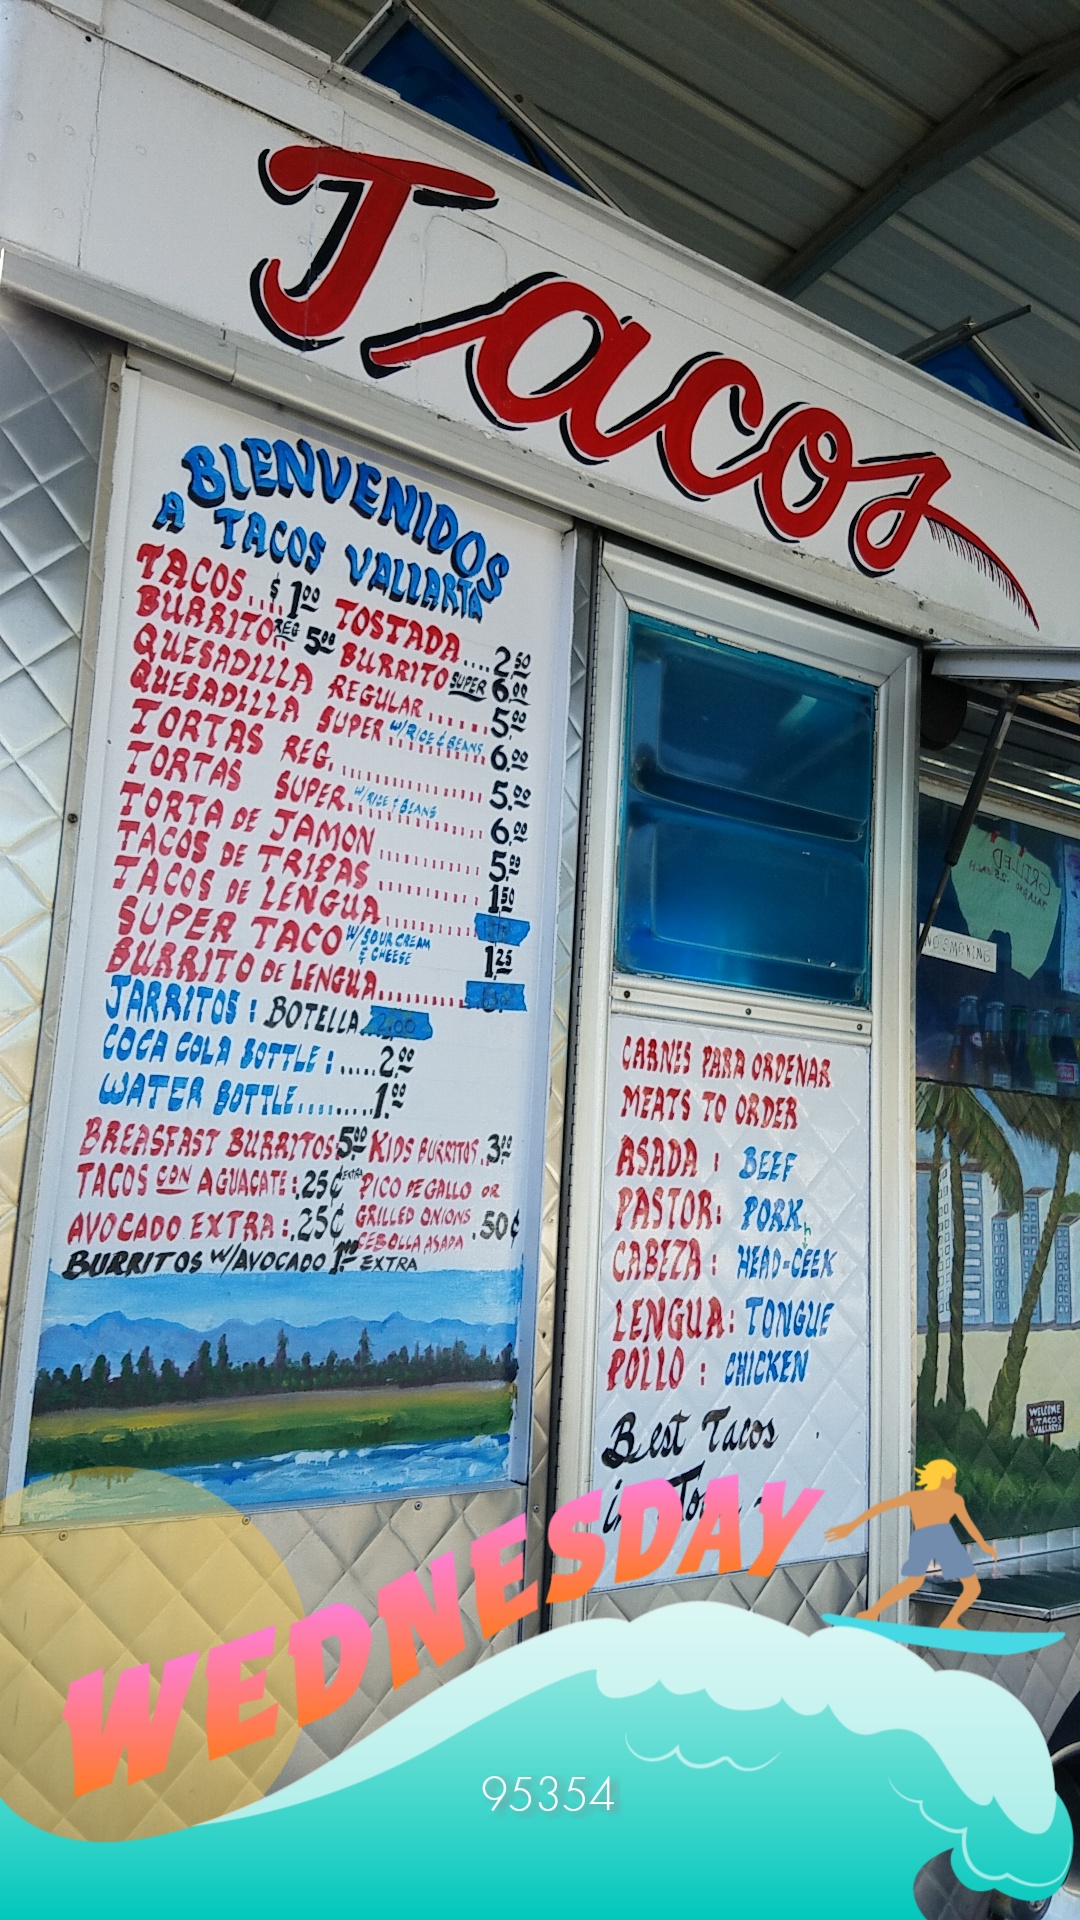 Tacos
BIENVENIDOS
A TACOS VALLARTA
TACOS.... $1.00 TOSTADA.... 2.50
BURRITO REG 5.00 BURRITO SUPER 6.00
QUESADILLA REGULAR...... 5.00
QUESADILLA SUPER W/RICE & BEANS 6.00
TORTAS REG. 5.00
TORTAS SUPER. W/RICE & BEANS 6.00
TORTA DE JAMON 5.00
TACOS DE TRIPAS 1.50
TACOS DE LENGUA
SUPER TACO W/SOUR CREAM & CHEESE 1.25
BURRITO DE LENGUA
JARRITOS : BOTELLA 2.00
COCA COLA BOTTLE :..... 2.00
WATER BOTTLE......... 1.00
BREASFAST BURRITOS 5.00 KIDS BURRITOS. 3.00
TACOS CON AGUACATE : .25¢ EXTRA PICO DE GALLO OR
AVOCADO EXTRA : .25¢ GRILLED ONIONS .50¢
CEBOLLA ASADA
BURRITOS W/AVOCADO 1.00 EXTRA
CARNES PARA ORDENAR
MEATS TO ORDER
ASADA : BEEF
PASTOR: PORK
CABEZA : HEAD=CEEK
h
LENGUA: TONGUE
POLLO : CHICKEN
Best Tacos
GRILLED
NO SMOKING
WELCOME
A TACOS
VALLARTA
WEDNESDAY
95354